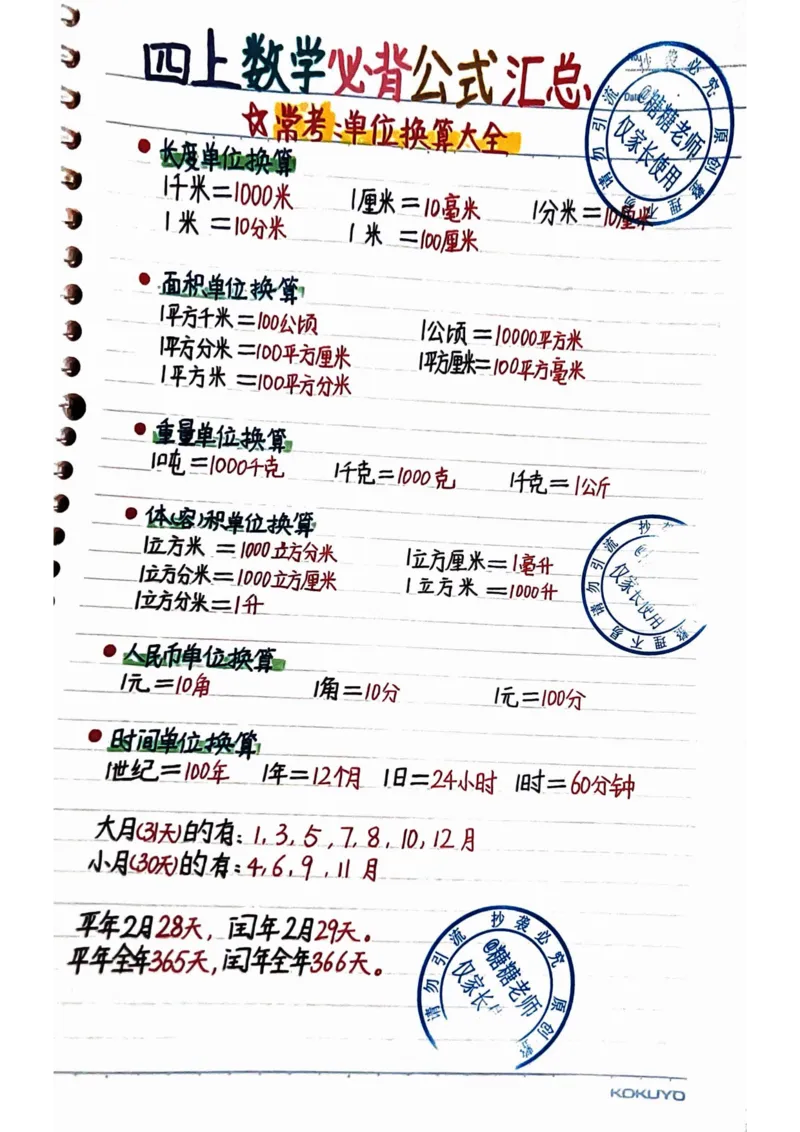 四上数学必背公式汇总
☆常考:单位换算大全
长度单位换算
1千米=1000米 1厘米=10毫米 1分米=10厘米
1米=10分米 1米=100厘米
面积单位换算
1平方千米=100公顷 1公顷=10000平方米
1平方分米=100平方厘米 1平方厘米=100平方毫米
1平方米=100平方分米
重量单位换算
1吨=1000千克 1千克=1000克 1千克=1公斤
体(容)积单位换算
1立方米=1000立方分米 1立方厘米=1毫升
1立方分米=1000立方厘米 1立方米=1000升
1立方分米=1升
人民币单位换算
1元=10角 1角=10分 1元=100分
时间单位换算
1世纪=100年 1年=12个月 1日=24小时 1时=60分钟
大月(31天)的有:1,3,5,7,8,10,12月
小月(30天)的有:4,6,9,11月
平年2月28天,闰年2月29天。
平年全年365天,闰年全年366天。
@糖糖老师
仅家长使用
原创整理不易请勿引流抄袭必究
仅家长使用
整理不易请勿引流抄
@糖糖老师
仅家长
请勿引流抄袭必究原创整
KOKUYO